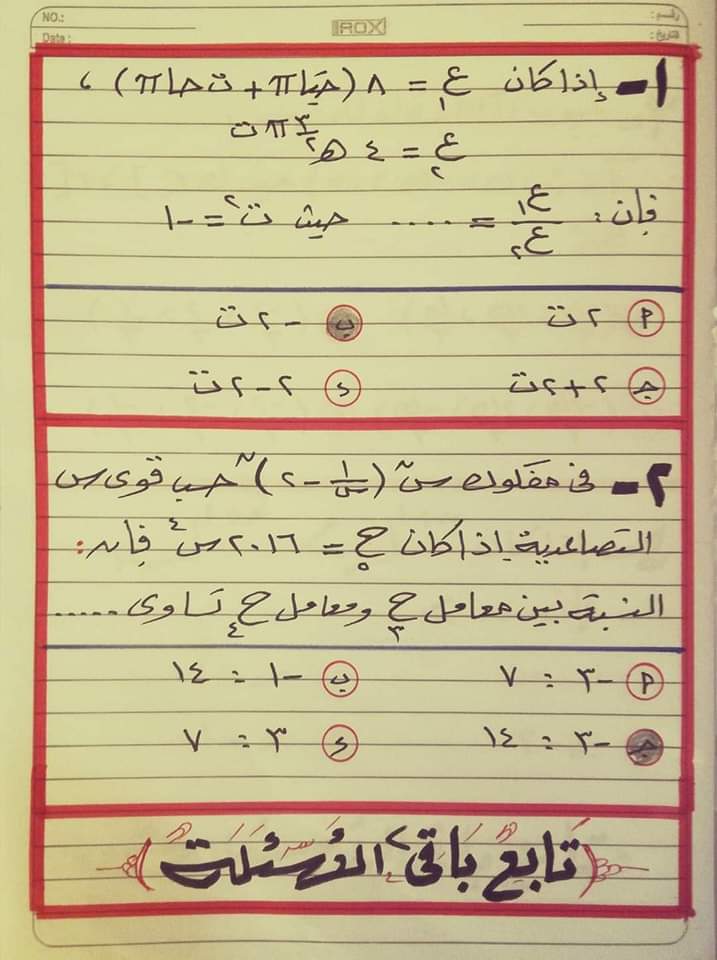 NO.:
رقم:
IROX
Date:
التاريخ:
١- إذا كان ع١ = ٨ (حتا π + ت حا π) ،
ع٢ = ٤ هـ^(٣/٢ π ت)
فإن: ع١/ع٢ = .... حيث ت^٢ = -١
أ ٢ ت ب -٢ ت
جـ ٢+٢ ت د ٢-٢ ت
٢- فى مفكوك س^ن (١/س - ٢)^ن حسب قوى س
التصاعدية إذا كان ح٥ = ٢٠١٦ س^٤ فإن:
النسبة بين معامل ح٣ ومعامل ح٤ تساوى .....
أ -٣ : ٧ ب -١ : ١٤
جـ -٣ : ١٤ د ٣ : ٧
تابع باقى الأسئلة